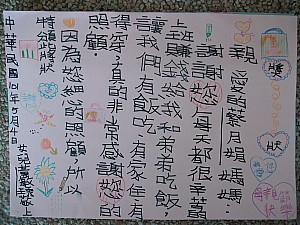 獎
狀
親愛的蔡月媽媽:
謝謝您每天都很辛苦的
上班賺錢給我和弟弟吃飯,
讓我們有飯吃、有家住、有
得穿、真的非常感謝您的
照顧。
因為您細心的照顧,所以
特頒獎狀
女兒敬上
中華民國年5月4日
母親節
快樂